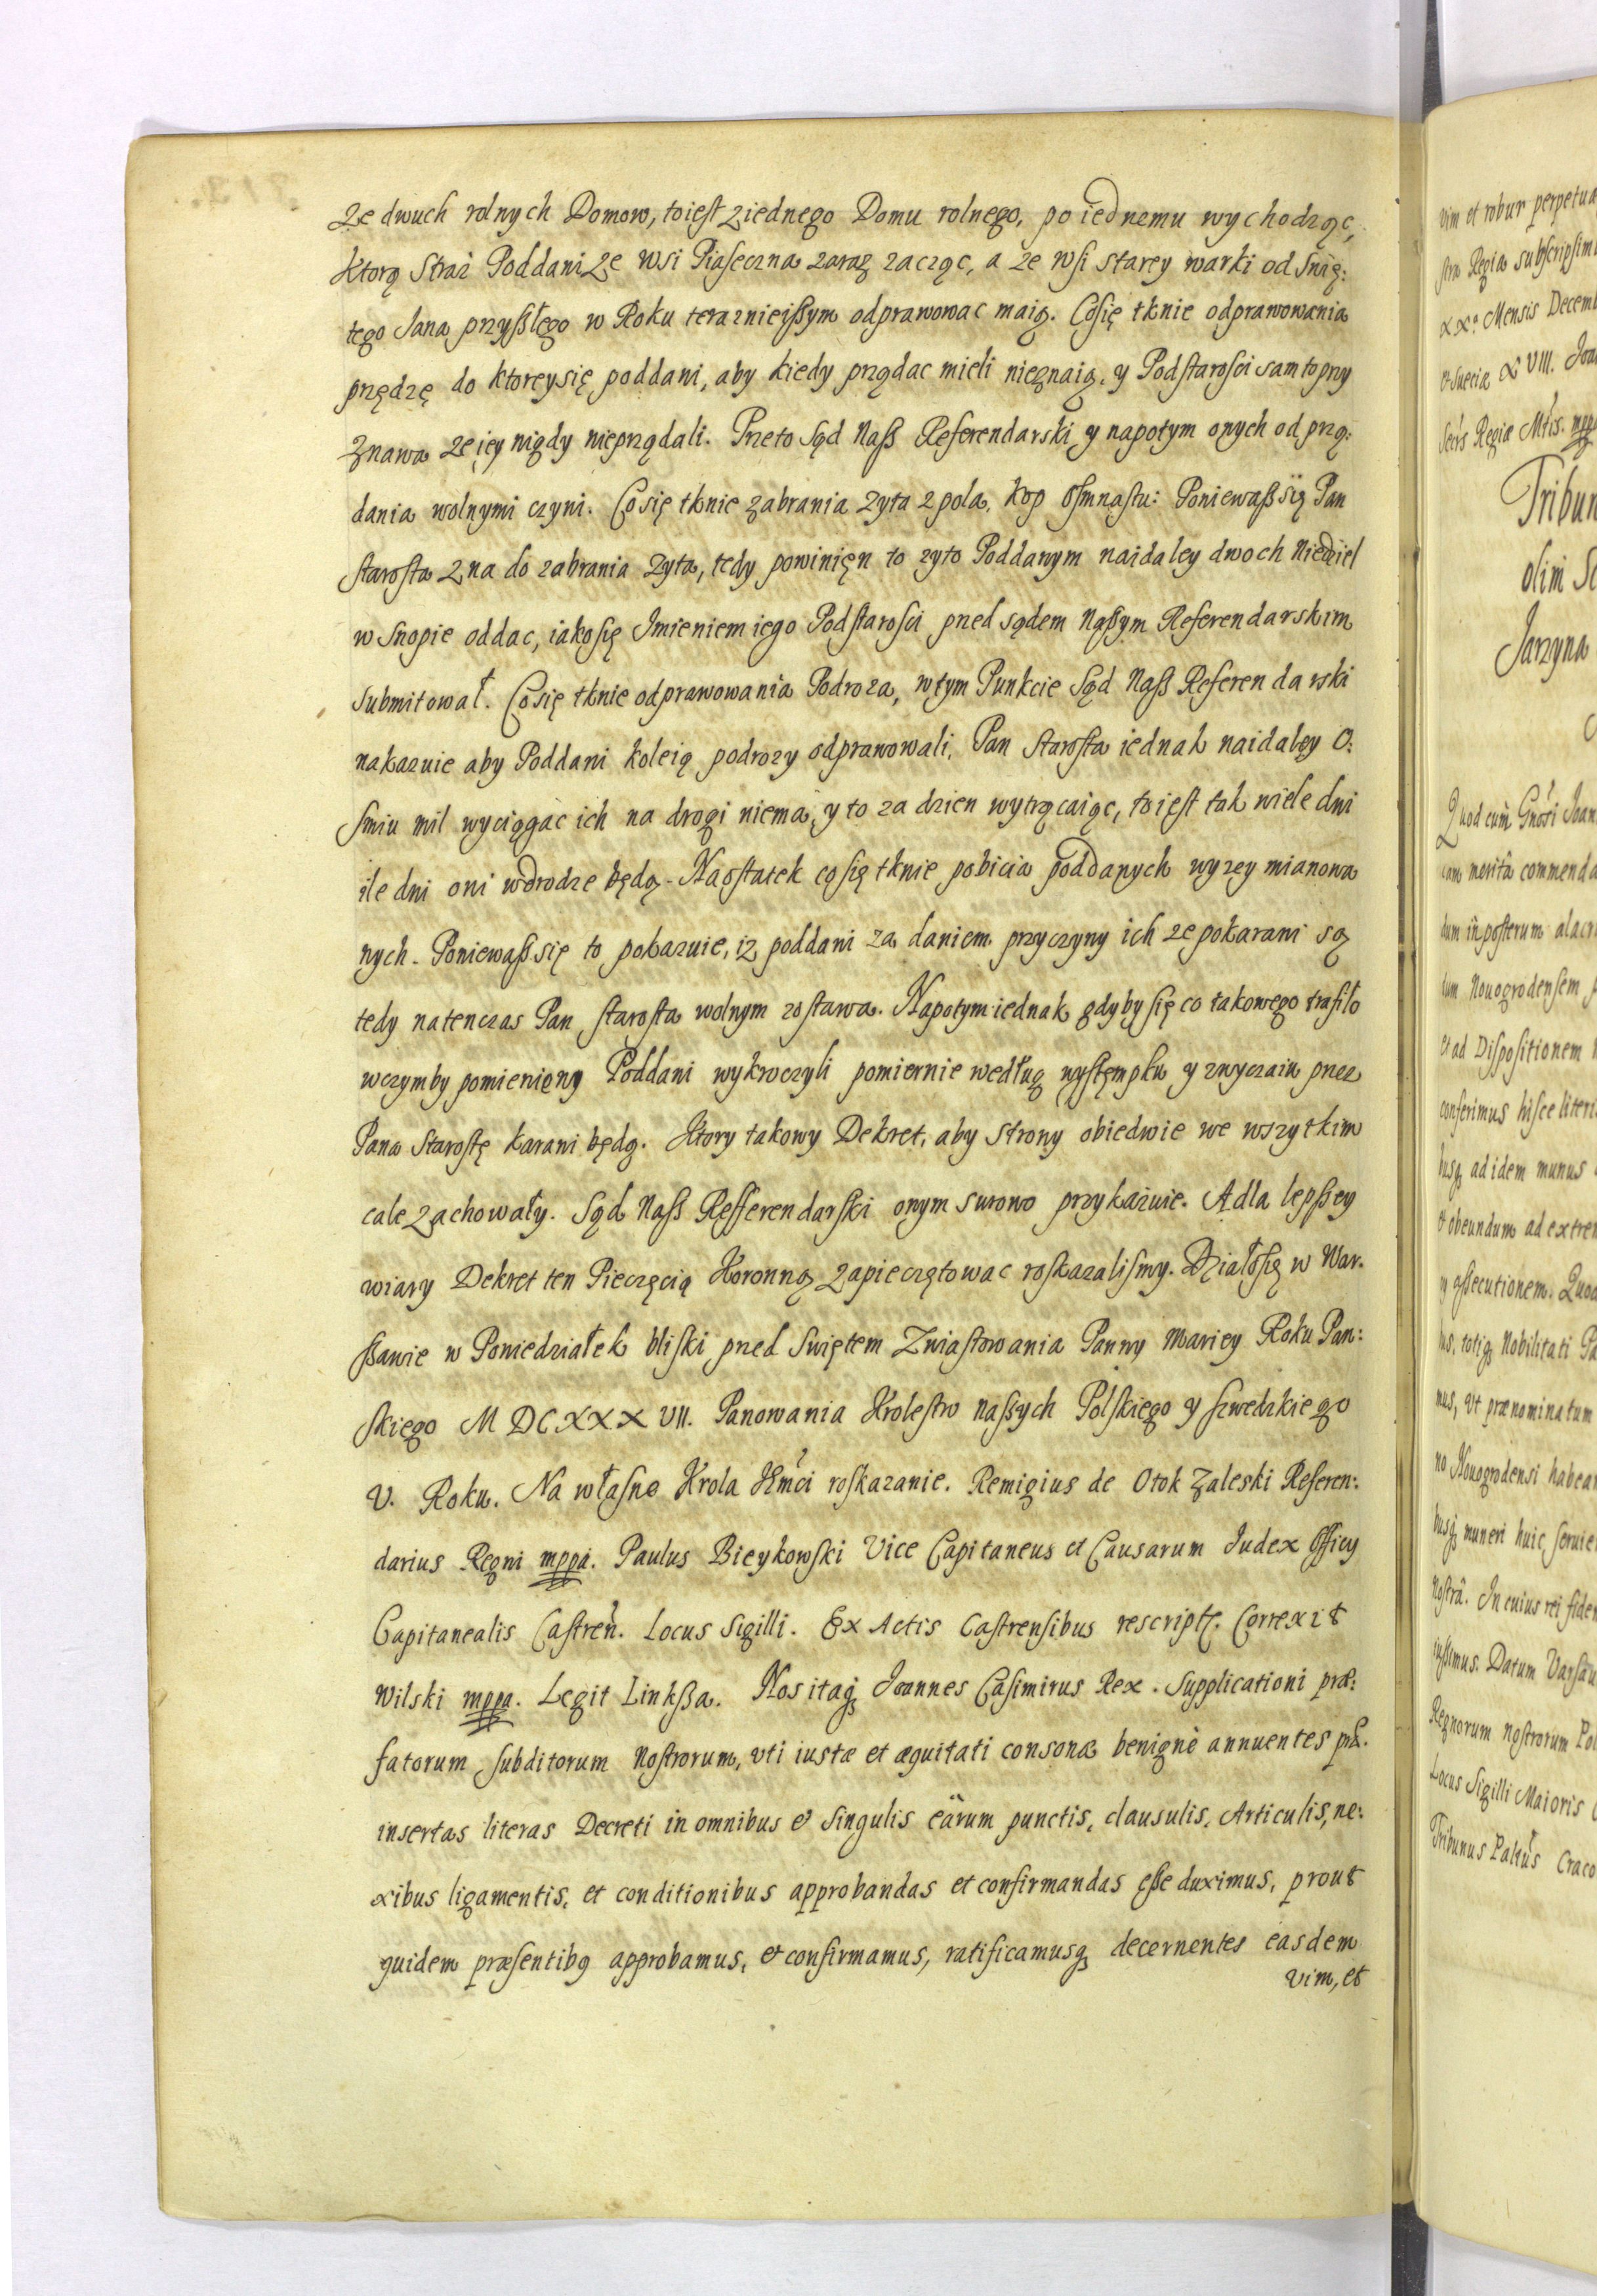 Ze dwuch rolnych Domow, toiest ziednego Domu rolnego, po iednemu wychodząc,
Ktorą Straż Poddani Ze Wsi Piaseczna zaraz zacząc, a ze wsi starey warki od Swię:
tego Jana przyszłego w Roku teraznieiszym odprawowac maią. Cosię tknie odprawowania
przędzę do Ktoreysię poddani, aby kiedy prządac mieli nieznaią, y Podstarosci sam toprzy
Znawa ze iey nigdy nieprządali. Przeto Sąd Nasz Referendarski y napotym onych od przą:
dania wolnymi czyni. Cosię tknie zabrania Zyta z pola, kop Osmnastu: Ponieważ się Pan
starosta Zna do zabrania Zyta, tedy powinięn to zyto Poddanym naidaley dwoch Niedziel
w Snopie oddac, iakosię Imieniem iego Podstarosci przed sądem Naszym Referendarskim
submitował. Cosię tknie odprawowania Podroza, wtym Punkcie Sąd Nasz Referendarski
nakazuie aby Poddani koleią podrozy odprawowali, Pan Starosta iednak naidaley O:
smiu mil wyciągac ich na drogi niema, y to za dzien wytrącaiąc, to iest tak wiele dni
ile dni oni wdrodze będą. Naostatek cosię tknie pobicia poddanych wyzey mianowa
nych. Ponieważ się to pokazuie, iz poddani za daniem przyczyny ich ze pokarani są
tedy natenczas Pan starosta wolnym zostawa. Napotym iednak gdyby się co takowego trafiło
wczymby pomienieny Poddani wykroczyli pomiernie według występku y zwyczaiu przez
Pana Starostę karani będą. Ktory takowy Dekret, aby Strony obiedwie we wszytkim
cale zachowały. Sąd Nasz Refferendarski onym surowo przykazuie. Adla lepszey
wiary Dekret ten Pieczęcią Koronną Zapieczętowac roskazalismy. Działosię w War.
szawie w Poniedziałek bliski przed Swiętem Zwiastowania Panny Mariey Roku Pan:
skiego M DC XXX VII. Panowania Krolestw naszych Polskiego y szwedzkiego
V. Roku. Na własne Krola JEmći roskazanie. Remigius de Otok Zaleski Referen:
darius Regni mppa. Paulus Bieykowski Vice Capitaneus et Causarum Judex Officy
Capitanealis Castren. Locus Sigilli. Ex Actis Castrensibus rescript. Correxit
Wilski mppa. Legit Linksza. Nos itaq Joannes Casimirus Rex. Supplicationi præ:
fatorum subditorum Nostrorum, vti iustæ et æquitati consonæ benignè annuentes præ.
insertas literas Decreti in omnibus et singulis eârum punctis, clausulis, Articulis, ne:
xibus ligamentis, et conditionibus approbandas et confirmandas esse duximus, prout
quidem præsentibq approbamus, et confirmamus, ratificamusq decernentes easdem
vim, et
vim et robur perpetua
stra Regia subscripsim
XX.a Mensis Decemb
et Sueciæ VIII. Joa
Regiæ Mtis. mpp
Tribun
olim
Jarzyna
Quod cum Joan
merita commenda
dum inposterum alacr
tum Nouogrodensem
et ad Dispositionem
conferimus hisce literi
busq ad idem munus
et obeundum ad extre
assecutionem. Quod
totiq Nobilitati Pa
mus, vt prænominatum
no Nouogrodensi habea
busq muneri huic seruie
Nostrâ. In cuius rei fidem
iussimus. Datum Varsau
Regnorum nostrorum Pol
Locus Sigilli Maioris
Tribunus Craco